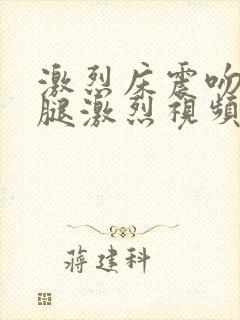 激烈床震吻
腿激烈視頻
蔣建科